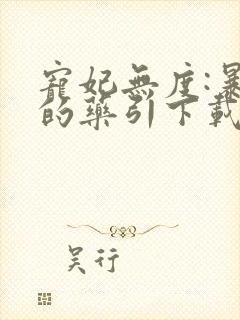 寵妃無度:暴
的藥引下載
吴行